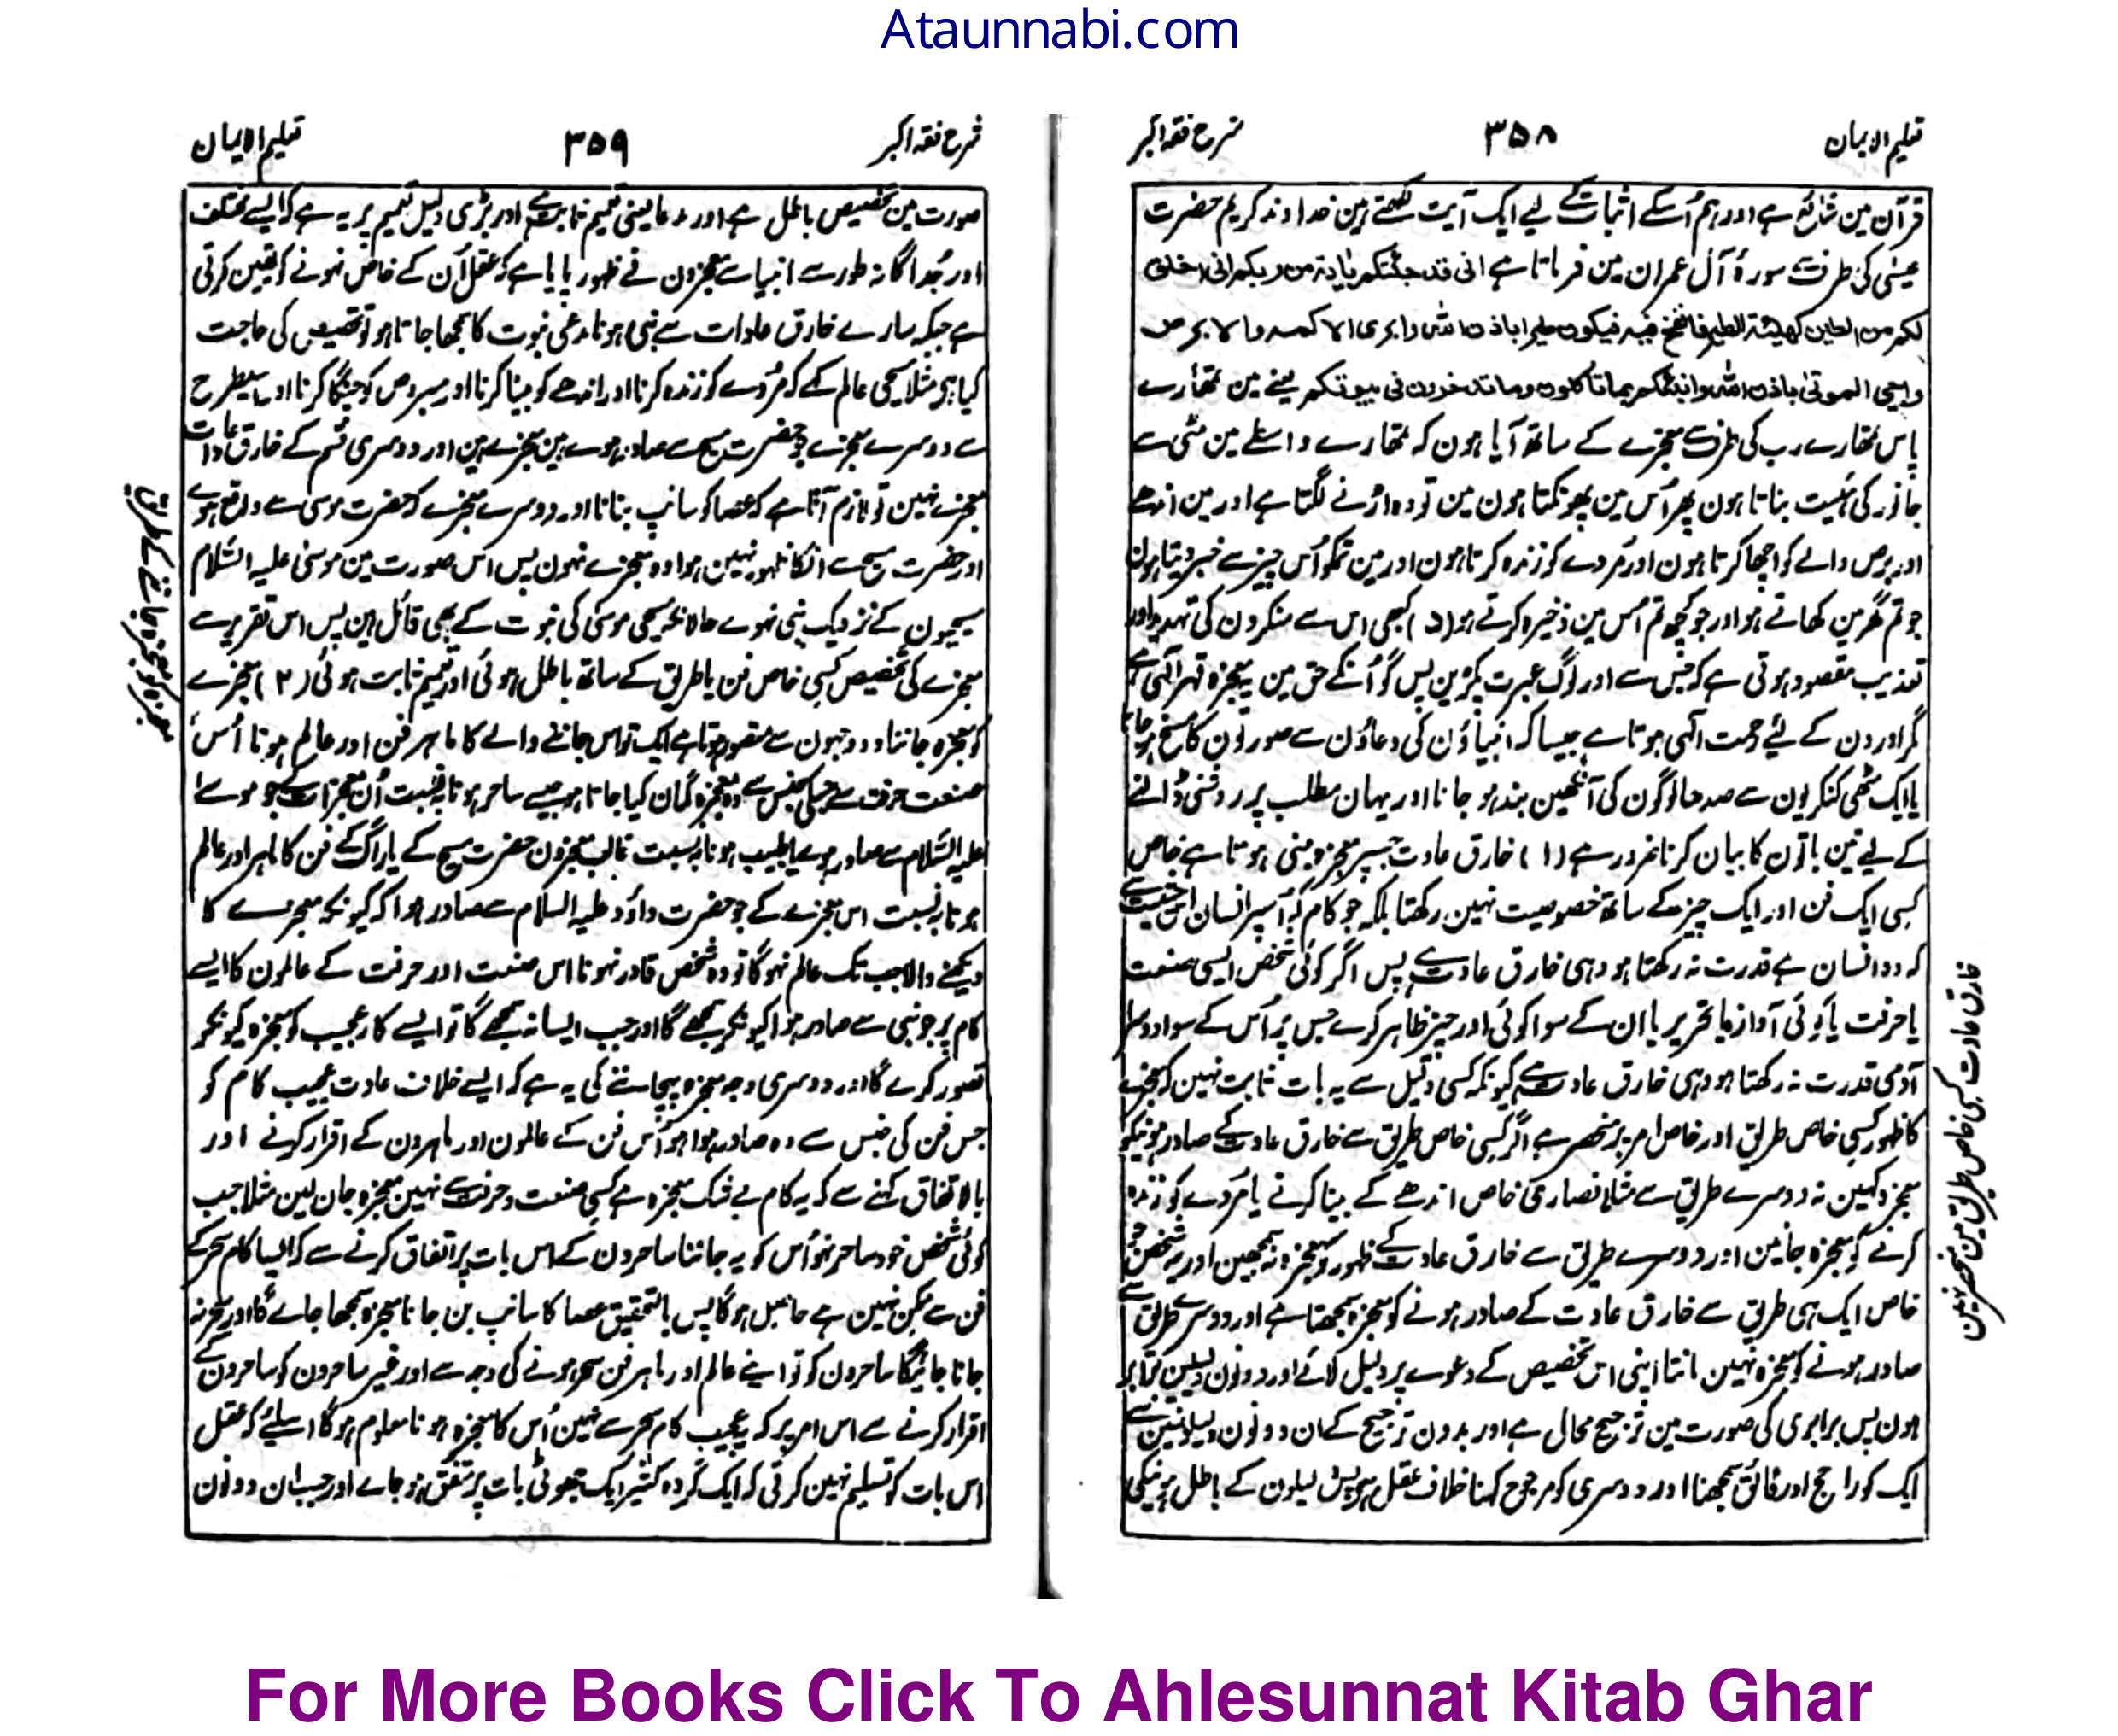 Ataunnabi.com
تعلیم الایمان ۳۵۸ شرح فقہ اکبر
قرآن مین شائع ہے اور ہم اُسکے اثبات کے لیے ایک آیت لکھتے ہین خداوند کریم حضرت
عیسٰی کی طرف سے سورۂ آل عمران مین فرماتا ہے انی قد جئتکم بایة من ربکم انی اخلق
لکم من الطین کھیئة الطیر فانفخ فیہ فیکون طیرا باذن اللہ وابری الاکمہ والابرص
واحیی الموتی باذن اللہ وانبئکم بما تاکلون وما تدخرون فی بیوتکم یعنے مین تمھارے
پاس تمھارے رب کی طرف سے معجزے کے ساتھ آیا ہون کہ تمھارے واسطے مین مٹی سے
جانور کی ہئیت بناتا ہون پھر اُس مین پھونکتا ہون مین تو وہ اڑنے لگتا ہے اور مین اندھے
اور برص والے کو اچھا کرتا ہون اور مردے کو زندہ کرتا ہون اور مین تمکو اُس چیز سے خبر دیتا ہون
جو تم گھر مین کھاتے ہو اور جو کچھ تم اُس مین ذخیرہ کرتے ہو (۵) کبھی اس سے منکرون کی تہدید اور
تعذیب مقصود ہوتی ہے کہ جس سے اور لوگ عبرت پکڑین پس گو اُنکے حق مین یہ معجزہ قہر الٰہی ہے
مگر اورون کے لیے رحمت الٰہی ہوتا ہے جیسا کہ انبیاؤن کی دعاؤن سے صورتون کا مسخ ہو جانا
یا ایک مٹھی کنکریون سے صدہا لوگون کی آنکھین بند ہو جانا اور یہان مطلب پر روشنی ڈالنے
کے لیے تین باتون کا بیان کرنا ضرور ہے (۱) خارق عادت جسپر معجزہ مبنی ہوتا ہے خاص
کسی ایک فن اور ایک چیز کے ساتھ خصوصیت نہین رکھتا بلکہ جو کام کہ اُسپر انسان اس حیثیت سے
کہ وہ انسان ہے قدرت نہ رکھتا ہو وہی خارق عادت ہے پس اگر کوئی شخص ایسی صنعت
یا حرفت یا کوئی آواز یا تحریر یا ان کے سوا کوئی اور چیز ظاہر کرے جس پر اُس کے سوا دوسرا
آدمی قدرت نہ رکھتا ہو وہی خارق عادت ہے کیونکہ کسی دلیل سے یہ بات ثابت نہین کہ معجزے
کا ظہور کسی خاص طریق اور خاص امر پر منحصر ہے اگر کسی خاص طریق سے خارق عادت کے صادر ہونیکو
معجزہ کہین نہ دوسرے طریق سے مثلا نصاریٰ خاص اندھے کے بینا کرنے یا مردے کو زندہ
کرنے کو معجزہ جانین اور دوسرے طریق سے خارق عادت کے ظہور کو معجزہ نہ سمجھین اور یہ شخص جو
خاص ایک ہی طریق سے خارق عادت کے صادر ہونے کو معجزہ سمجھتا ہے اور دوسرے طریق سے
صادر ہونے کو معجزہ نہین مانتا اپنی اس تخصیص کے دعوے پر دلیل لائے اور دونون دلیلین برابر
ہون پس برابری کی صورت مین ترجیح محال ہے اور بدون ترجیح کے ان دونون دلیلونمین سے
ایک کو راجح اور فائق سمجھنا اور دوسری کو مرجوح کہنا خلاف عقل ہے پس دلیلون کے باطل ہونیکی
خارق عادت کسی خاص طریق مین منحصر نہین
شرح فقہ اکبر ۳۵۹ تعلیم الایمان
صورت مین تخصیص باطل ہے اور مدعا یعنی تعمیم ثابت ہے اور بڑی دلیل تعمیم پر یہ ہے کہ ایسے مختلف
اور جُداگانہ طور سے انبیا سے معجزون نے ظہور پایا ہے کہ عقل اُن کے خاص نہونے کو یقین کرتی
ہے جبکہ سارے خارق عادات سے نبی ہونا مدعی نبوت کا سمجھا جاتا ہو تو تخصیص کی حاجت
کیا ہے مثلا مسیحی عالم کے کہ مُردے کو زندہ کرنا اور اندھے کو بینا کرنا اور مبروص کو چنگا کرنا اور اسیطرح
سے دوسرے معجزے جو حضرت مسیح سے صادر ہوے ہین معجزے ہین اور دوسری قسم کے خارق عادات
معجزے نہین تو لازم آتا ہے کہ عصا کو سانپ بنانا اور دوسرے معجزے کہ حضرت موسی سے واقع ہوے
اور حضرت مسیح سے انکا ظہور نہین ہوا وہ معجزے نہون پس اس صورت مین موسٰی علیہ السلام
مسیحیون کے نزدیک نبی نہوے حالانکہ مسیحی موسٰی کی نبوت کے بھی قائل ہین پس اس تقریر سے
معجزے کی تخصیص کسی خاص فن یا طریق کے ساتھ باطل ہوئی اور تعمیم ثابت ہوئی (۲) معجزے
کو معجزہ جاننا دو وجہون سے متصور ہوتا ہے ایک تو اس جاننے والے کا ماہر فن اور عالم ہونا اُس
صنعت حرفت سے جسکی جنس سے وہ معجزہ گمان کیا جاتا ہو جیسے ساحر ہونا بہ نسبت اُن معجزات کے جو موسے
علیہ السلام سے صادر ہوے یا طبیب ہونا بہ نسبت غالب معجزون حضرت مسیح کے یا راگ کے فن کا ماہر اور عالم
ہونا بہ نسبت اس معجزے کے جو حضرت داؤد علیہ السلام سے صادر ہوا کہ کیونکہ معجزے کا
دیکھنے والا جب تک عالم نہوگا تو وہ شخص قادر نہونا اس صنعت اور حرفت کے عالمون کا ایسے
کام پر جو نبی سے صادر ہوا کیونکر سمجھے گا اور جب ایسا نہ سمجھے گا تو ایسے کار عجیب کو معجزہ کیونکر
تصور کرے گا اور دوسری وجہ معجزہ پہچاننے کی یہ ہے کہ ایسے خلاف عادت عجیب کام کو
جس فن کی جنس سے وہ صادر ہوا ہو اُس فن کے عالمون اور ماہرون کے اقرار کرنے اور
بالاتفاق کہنے سے کہ یہ کام بے شک معجزہ ہے کسی صنعت و حرفت سے نہین معجزہ جان لین مثلا جب
کوئی شخص خود ساحر نہو اُس کو یہ جاننا ساحرون کے اس بات پر اتفاق کرنے سے کہ ایسا کام سحر کے
فن سے ممکن نہین ہے حاصل ہوگا پس بالتحقیق عصا کا سانپ بن جانا معجزہ سمجھا جائے گا اور یہ معجزہ
جانا جائیگا ساحرون کو تو اپنے عالم اور ماہر فن سحر ہونے کی وجہ سے اور غیر ساحرون کو ساحرون کے
اقرار کرنے سے اس امر پر کہ یہ عجیب کام سحر سے نہین اُس کا معجزہ ہونا معلوم ہوگا اسلیے کہ عقل
اس بات کو تسلیم نہین کرتی کہ ایک گروہ کثیر ایک جھوٹی بات پر متفق ہو جاے اور جب ان دونون
معجزہ کو معجزہ جاننے کے طریق
For More Books Click To Ahlesunnat Kitab Ghar